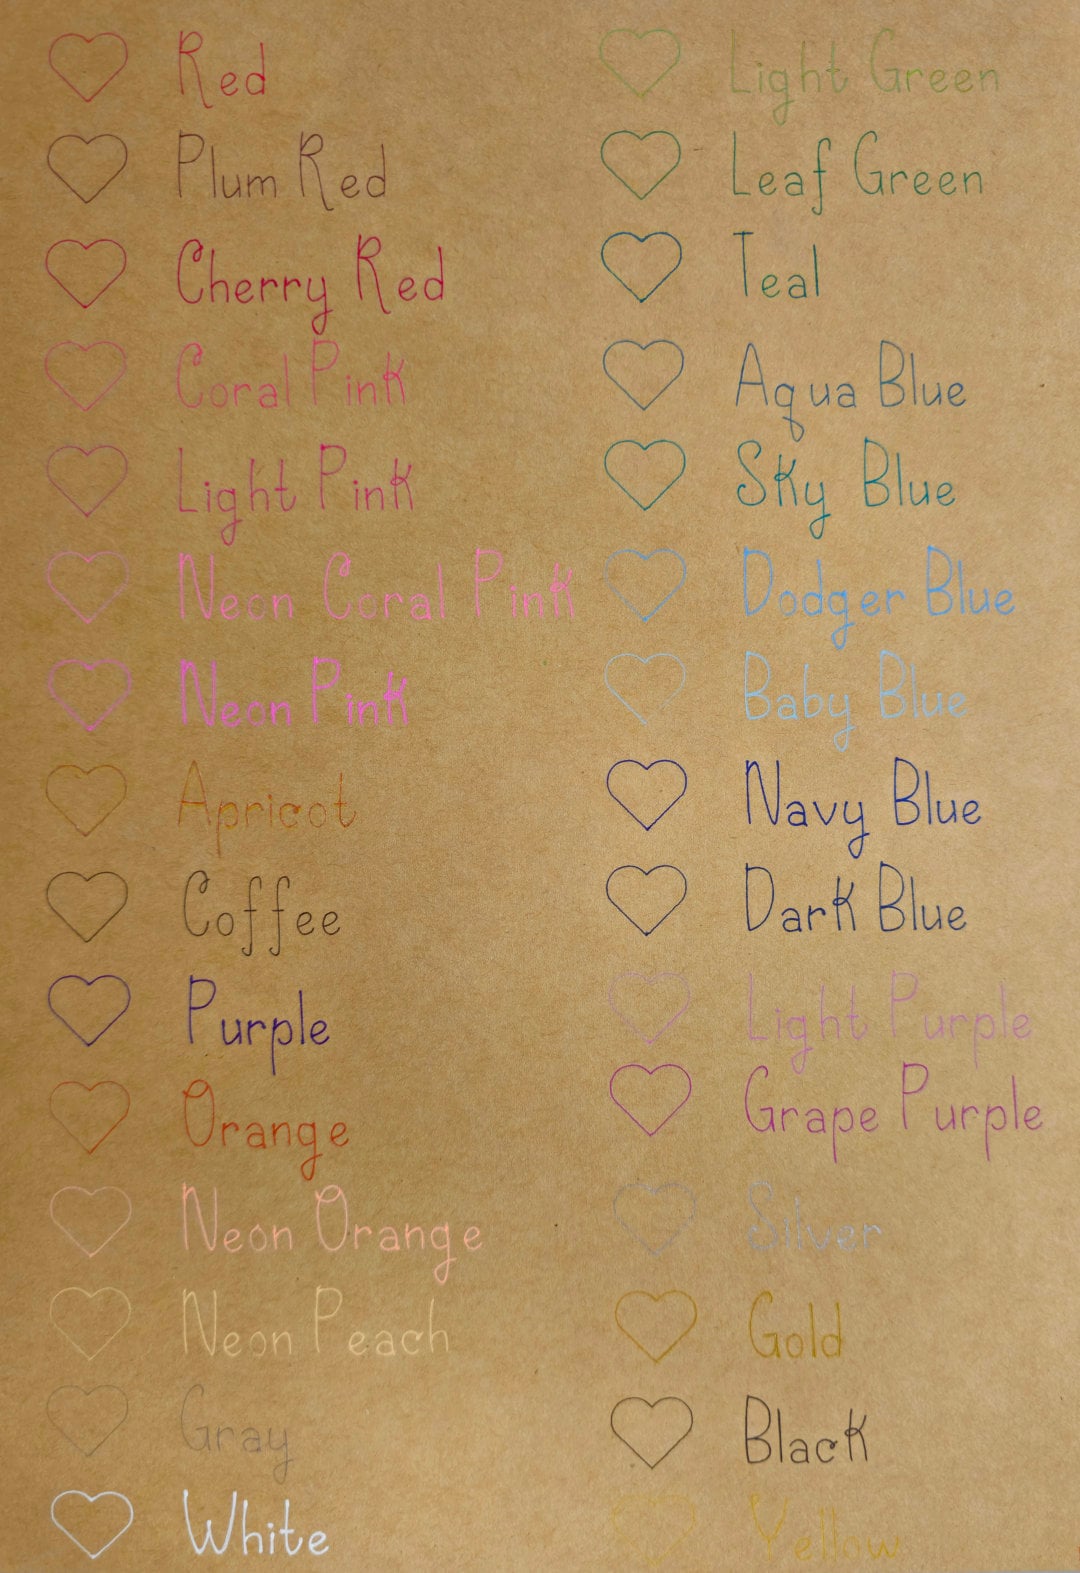 Red
Plum Red
Cherry Red
Coral Pink
Light Pink
Neon Coral Pink
Neon Pink
Apricot
Coffee
Purple
Orange
Neon Orange
Neon Peach
Gray
White
Light Green
Leaf Green
Teal
Aqua Blue
Sky Blue
Dodger Blue
Baby Blue
Navy Blue
Dark Blue
Light Purple
Grape Purple
Silver
Gold
Black
Yellow